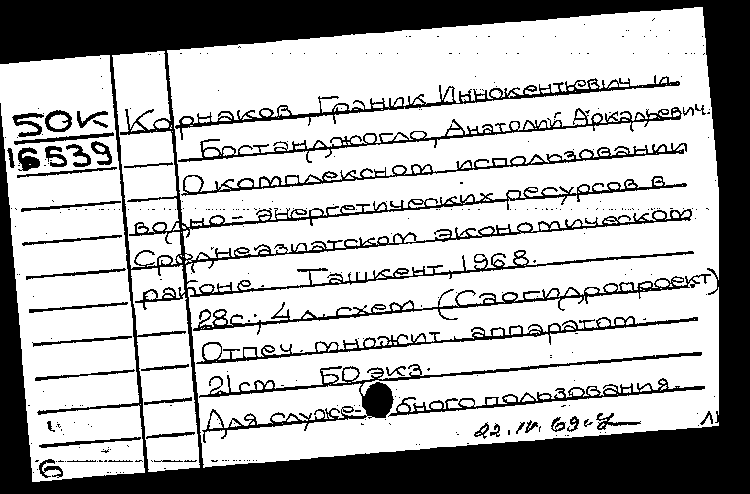 50К Корнаков, Граник Иннокентьевич и
16539 Бостанджогло, Анатолий Аркадьевич.
О комплексном использовании
водно-энергетических ресурсов в
Среднеазиатском экономическом
районе. Ташкент, 1968.
28с.; 4 л. схем. (Саогидропроект)
Отпеч. множит. аппаратом.
21см. 50 экз.
Для служебного пользования.
22.IV.69г.
6